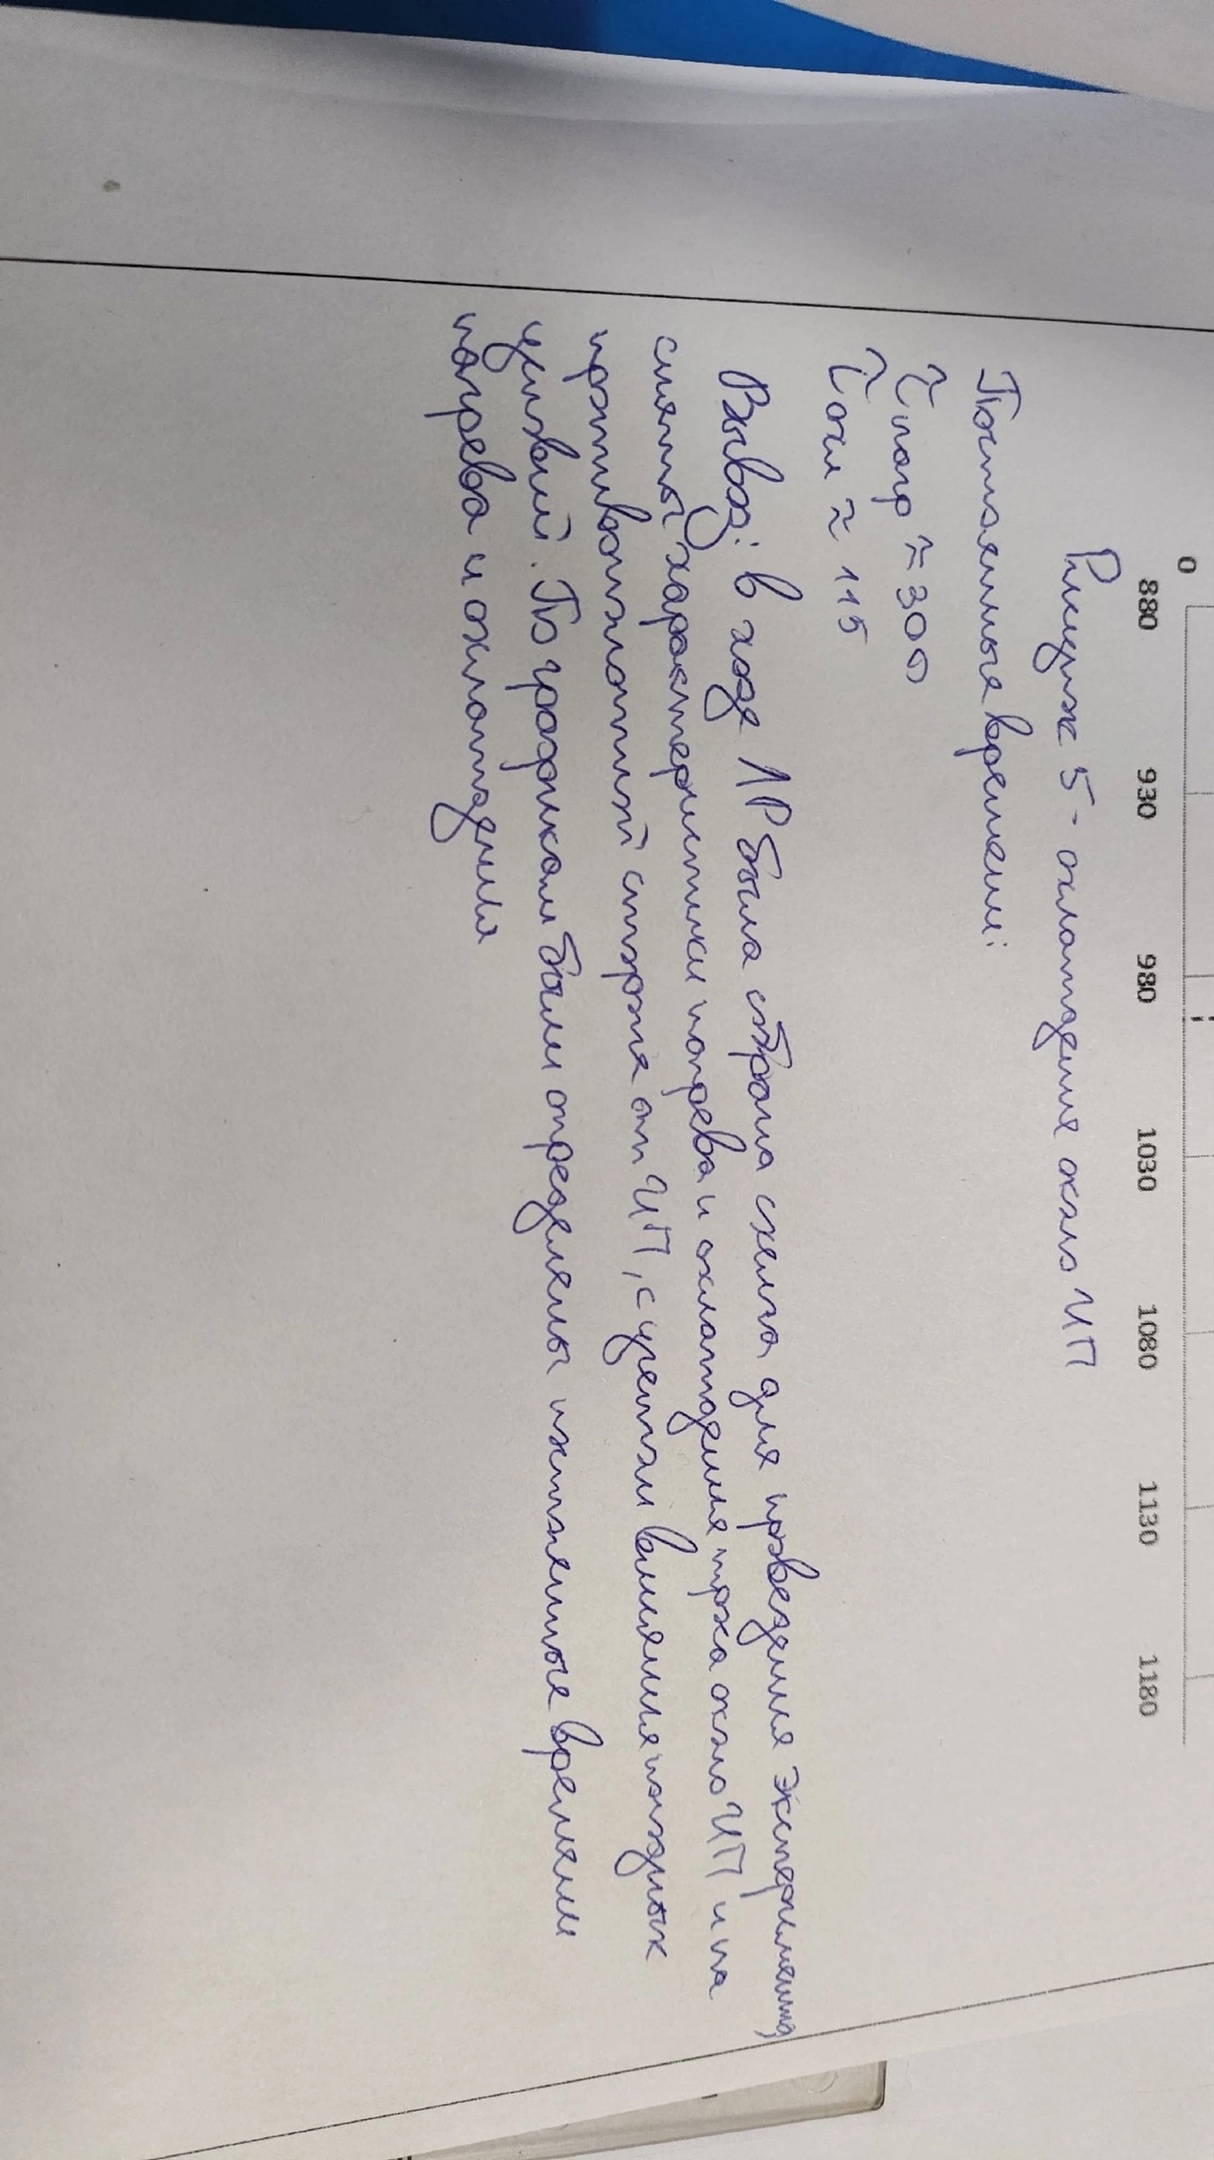 0
880 930 980 1030 1080 1130 1180
Рисунок 5 - охлаждения около ИП
Постоянные времени:
τнагр ≈ 300
τохл ≈ 115
Вывод: в ходе ЛР была собрана схема для проведения эксперимента,
сняты характеристики нагрева и охлаждения около ИП и на
противоположной стороне от ИП, с учетом влияния погодных
условий. По графикам были определены постоянные времени
нагрева и охлаждения